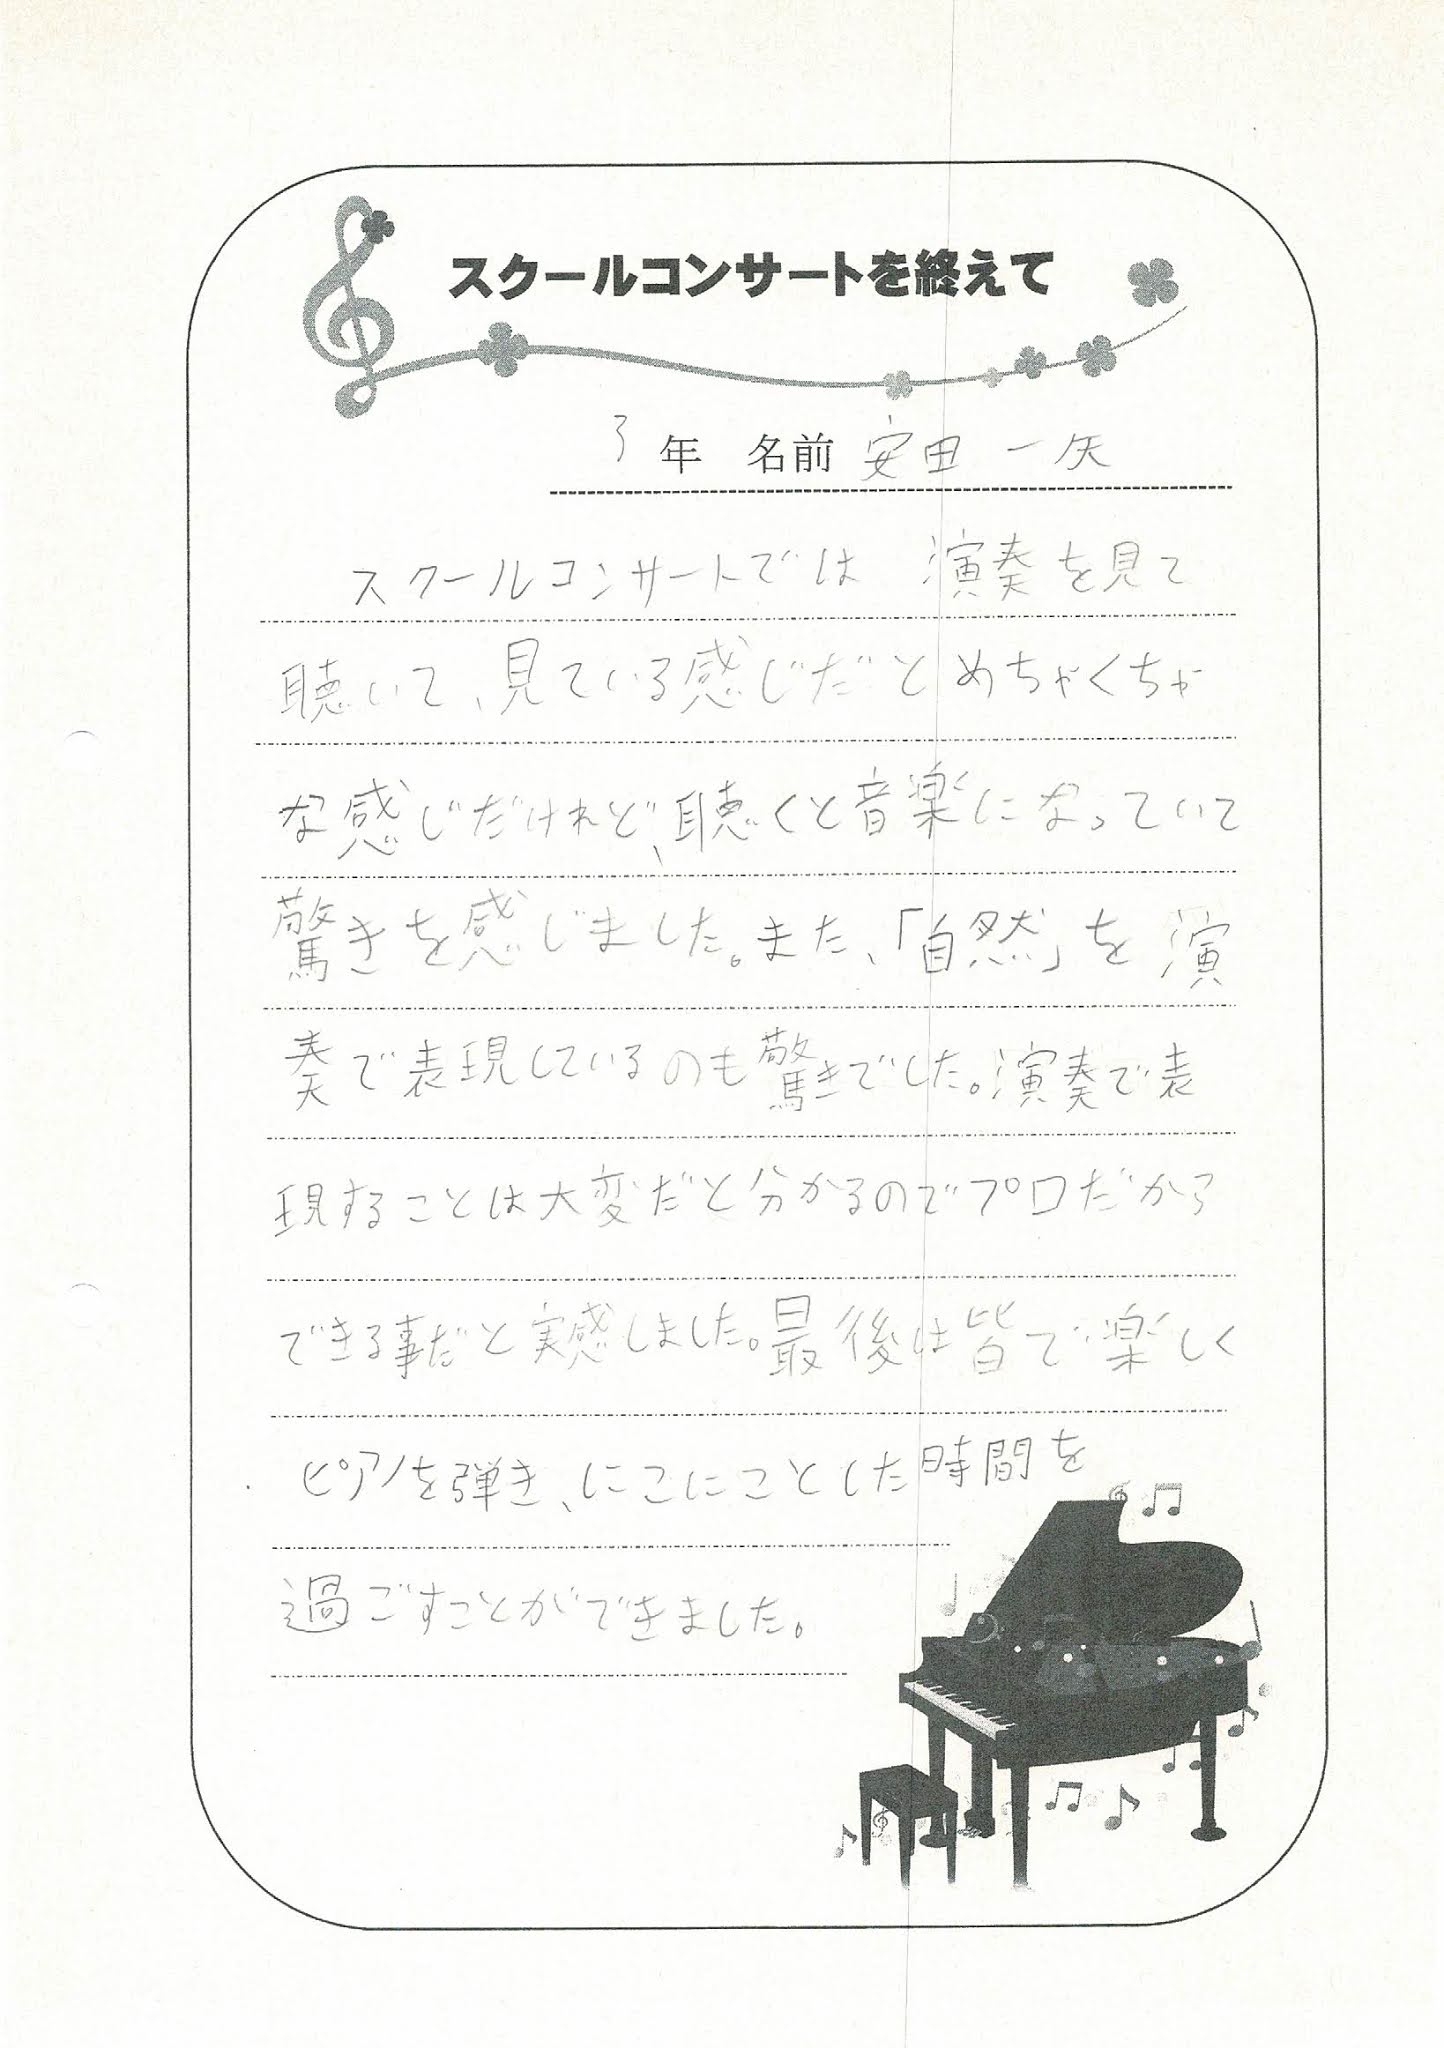 スクールコンサートを終えて
3年 名前 安田 一矢
スクールコンサートでは 演奏を見て
聴いて、見ている感じだとめちゃくちゃ
な感じだけれど、聴くと音楽になっていて
驚きを感じました。また、「自然」を演
奏で表現しているのも驚きでした。演奏で表
現することは大変だと分かるのでプロだから
できる事だと実感しました。最後は皆で楽しく
ピアノを弾き、にこにことした時間を
過ごすことができました。